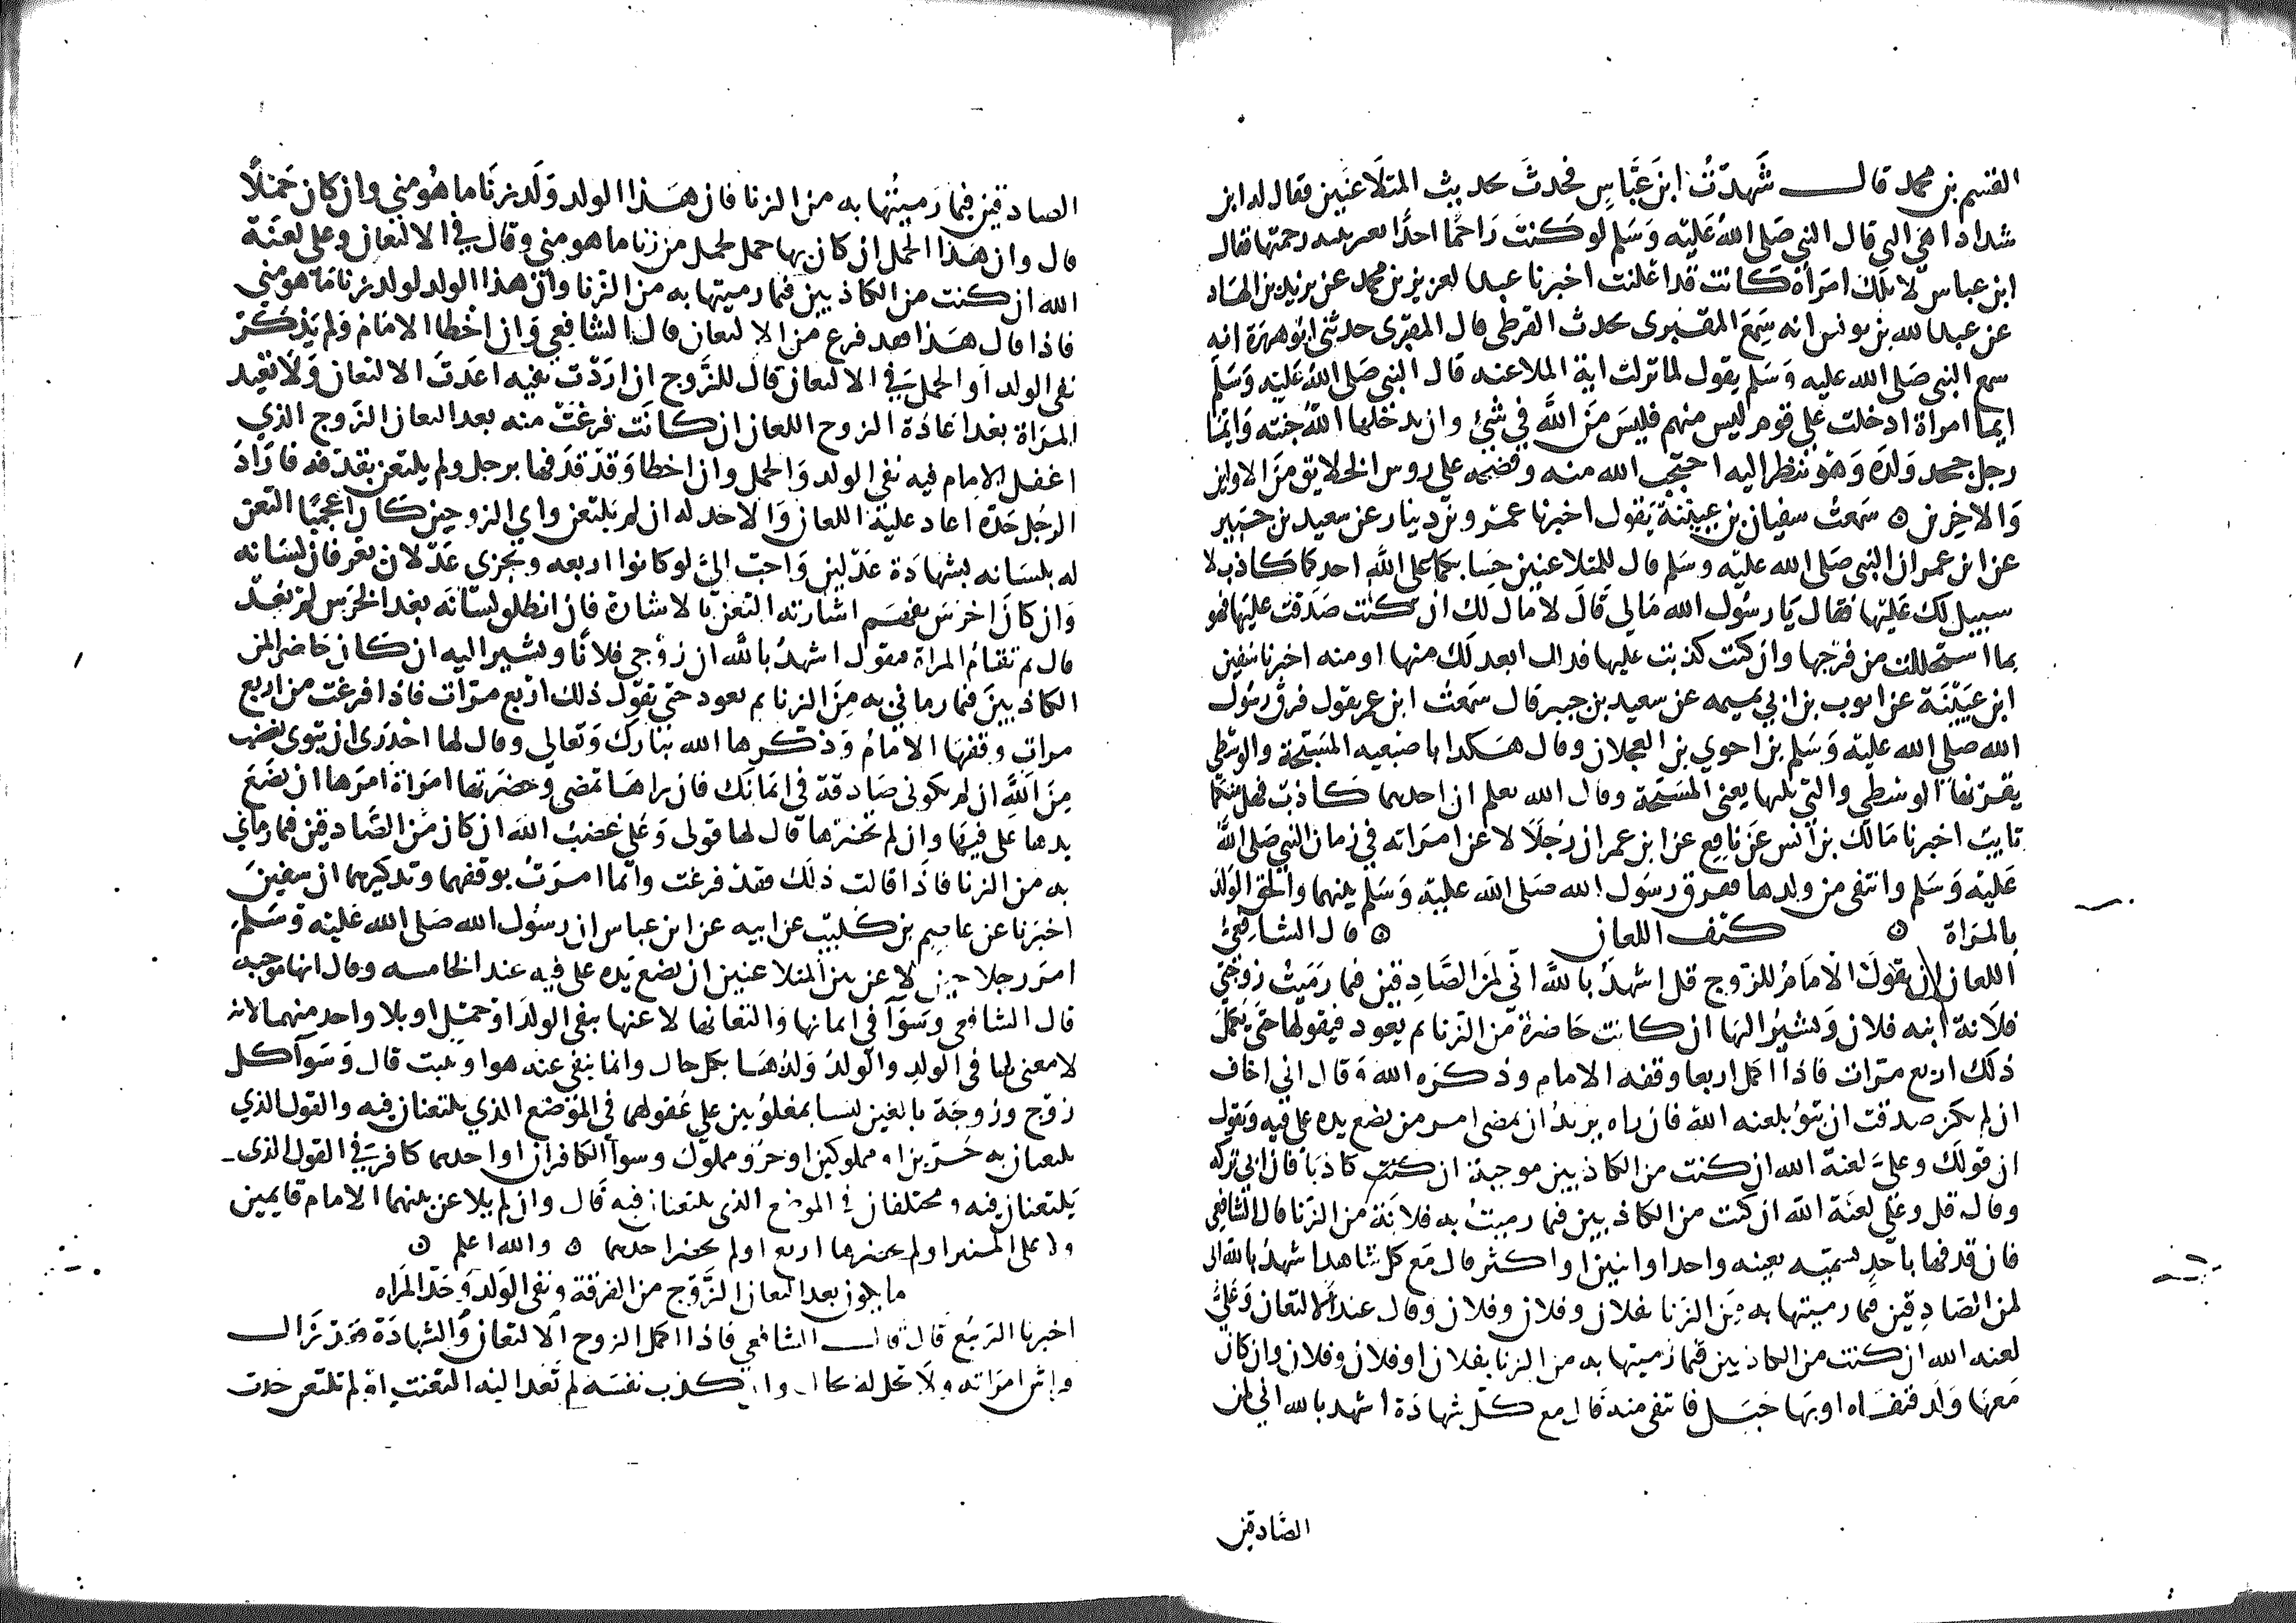 القسم بن محمد قال شَهِدْتُ ابن عَبَّاسٍ يحدثَ بحديث المتلَاعنَين فقال له ابن
شداد اهي التي قال النبي صَلى اللهُ عَليْه وَسَلم لو كنتَ رَاجمًا احدًا بغير بينه رجمتها فقال
ابن عباس لا تلك امرَاة كَانت قد اعْلنت اخبرنا عبد العزيز بن محمد عن يزيد بن الهاد
عن عبد الله بن يونس انه سَمعَ المقبرى يحدث القرظى قال المقبرى حدثني ابو هريرة انه
سمع النبى صَلى الله عليه وَسَلم يقول لما نزلت اية الملاعنه قال النبي صَلى اللهُ عَليْه وَسَلم
ايما امراة ادخلت على قوم من ليس منهم فليسَ منَ اللَّه في شئ ولن يدخلها اللهُ جنته وَايما
رجل جحد وَلدَه وَهوَ ينظر اليه احتجب الله منه وفضحه على روس الخلايق منَ الاولين
وَالاخرين ۞ سَمعتُ سفيان بن عيينَة يَقول اخبرنا عمرو بن دينار عن سعيد بن جبير
عن ابن عمر ان النبى صَلى الله عليْه وسَلم قال للمتلاعنين حِسَابكما على اللَّه احدكما كاذب لا
سبيل لك عَليْها فقال يَا رسُول الله مَالي قَالَ لا مال لك ان كنت صَدَقت عليها فهو
بما استحللت من فَرْجها وان كنت كذبت عليها فذلك ابعد لَك منها او منه اخبرنا سفين
ابن عيَيْنَة عن ايوب بن ابي تميمه عن سعيد بن جبير قال سَمعتُ ابن عمر يقول فرقَ رسُول
الله صلى الله عليْه وَسَلم بين اخوي بني العجلان وقال هَكذا باصبعيه المسَبّحة والوسْطى
يقرنهما الوسْطي والتي تليها يعنى المسَبّحة وقال الله يعلم ان احدكما كَاذبٌ فهل منكما
تايبٌ اخبرنا مَالك بن انس عَن نافع عن ابن عمر ان رَجلًا لاعن امرَاته في زمان النبي صَلى اللهُ
عَليْه وَسَلم وانتفى من ولدها ففرق رسَول الله صَلى الله عليْه وَسَلم بينهما والحق الوَلدَ
بالمرَاة ۞ كَيْفَ اللعان ۞ قال الشافِعيُّ
اللعان ان يقولَ الامَامُ للزَّوج قل اشهدُ باللَّه انّي لمَن الصَّادِقين فيما رَميْتُ زوْجَتي
فلَانة ابنه فلان وَيشيرُ اليها ان كانت حَاضرة منَ الزنا ثم يعود فيقولها حتى يكمل
ذلكَ اربع مرّات فاذا اكمل اربعا وقفه الامام وذكرَه الله وَقال اني اخاف
ان لم تكن صدقت ان تبُوَ بلعنه الله فان رَاه يريدُ ان يمضى امر من يضع يده على فيه وَيقول
ان قولكَ وعليَّ لعنة الله ان كنت من الكاذبين موجبة ان كنت كاذبًا فان ابى تركه
وقال قل وعَلي لعنَة اللَّه ان كنت من الكاذبين فيما رميتُ به فلانَة من الزنا قال الشافعي
فان قذفها باحَدٍ يسمّيه بعينه واحدا او اثنين او اكثر قال مَع كل شاهد اشهدُ بالله اني
لمن الصَادِقين فيما رميتها به مِنَ الزنا بفلان وفلان وفلان وقال عند الالتعان وَعَليَّ
لعنه الله ان كنت من الكاذبين فيما رَميتها به من الزنا بفلان او فلان وفلان وان كان
مَعَها وَلَد فنفَاه او بهَا حَبَل فانتفى منه قَال مع كلّ شهادَة اشهد بالله اني لمن
الصَّادقين
الصادقين فيما رَميتُها به من الزنا فان هَذا الولد وَلَد زنًا ما هُو مني وان كان حَمْلًا
قال وان هَذا الحمل ان كان بها حمل لحمل من زنا ما هو مني وقال في الالتعان وعلي لعنَة
الله ان كنت من الكاذبين فيما رميتها به من الزنا وان هذا الولد لولد زنا مَا هو مني
فاذا قال هَذا فقد فرغ من الالتعان قال الشافعي وَان اخْطا الامَام وَلم يَذكرْ
نفى الولد اوَ الحملَ في الالتعان قَالَ للزَّوج ان ارَدْت نفيه اعَدتَ الالتعان وَلا تعيد
المرَاة بعد اعَادَة الزوج اللعان ان كَانت فرغَتْ منه بعد التعان الزَوج الذي
اغفل الامام فيه نفى الولد وَالحمل وان اخطا وَقدْ قذَفها برجل ولم يلتعن بقذفه فارَادَ
الرجُل حَدَّه اعاد عليْه اللعان وَالا حد له ان لم يلتعن واي الزوجين كَان اعْجميًا التعن
له بلسَانه بشهادَة عَدْلين وَاحبّ اليَّ لو كانوا اربعه ويجزى عَدْلان يعرفان لسَانه
وَان كانَ اخرَسَ يفهم اشَارته التعن بالاشارة فان انطلق لسَانه بعد الخرَس لم يعد
قال ثم تقَامُ المرَاة فتقول اشهدُ باللَّه ان زَوْجي فلانًا وتشير اليه ان كَان حَاضرا لمن
الكاذبينَ فيما رماني به مِنَ الزنا ثم تعود حتى تقوْل ذلك اربع مرّات فاذا فرغت من اربع
مرات وقفها الامَامُ وَذكرها الله تبَارَكَ وَتعالى وقال لها احْذرَى ان تبوَى بغضب
منَ اللَّه ان لم تكونى صَادقة في ايمَانك فان رَاهَا تمضى وَحضرَتها امرَاة امَرَها ان تضَعَ
يدها على فيهَا وان لم تحضرها قال لها قولى وَعَلي غضبُ الله ان كان منَ الصَّادقين فيما رماني
به من الزنا فاذَا قالت ذلك فقد فرغت وانما امَرْتُ بوقفهما وتذكيرهما ان سفينَ
اخبَرَنا عن عاصِم بن كليب عن ابيه عن ابن عباس ان رسُول الله صَلى الله عَليْه وَسَلم
امَر رجلا حين لاعن بين المتلاعنين ان يضع يَده على فيه عند الخامسه وقال انها موجبه
قال الشافعي وَسَوَآ في ايمانها وَالتعانها لاعنها بنفى الولدَ او حمْل او بلا واحد منهما لانه
لا معنى لها في الولدِ وَالولدُ وَلدُهَا بكل حال وانما ينفى عنه هو او يثبت قال وَسَوآ كل
زوْج وزوجَة بالغين ليسا بمغلوُبين على عَقولهما في المَوْضع الذي يلتعنان فيه والقول الذي
يلتعنان به حُرّين او مملوكين او حُرّ ومملوك وسوآ الكافران او احدهما كافر في القول الذى
يَلتعنان فيه ويختلفان في الموضع الذى يلتعنان فيه قَال وان لم يلاعن بينهما الامام قايمين
ولا على المنبر او لم يحضرهما اربع او لم يحضر احدهما ۞ والله اعلم ۞
ما يكون بعد التعان الزَّوج من الفرقة ونفى الوَلد وَحَدّ المرَاه
اخبرنا الربيع قال قال الشافعي فاذا اكمل الزوج الالتعان وَالشهادَة فقد زَال
فراش امرَاته ولا تحل له بحال وان كذب نفسَه لم تعد اليه التعنت او لم تلتعن حدت